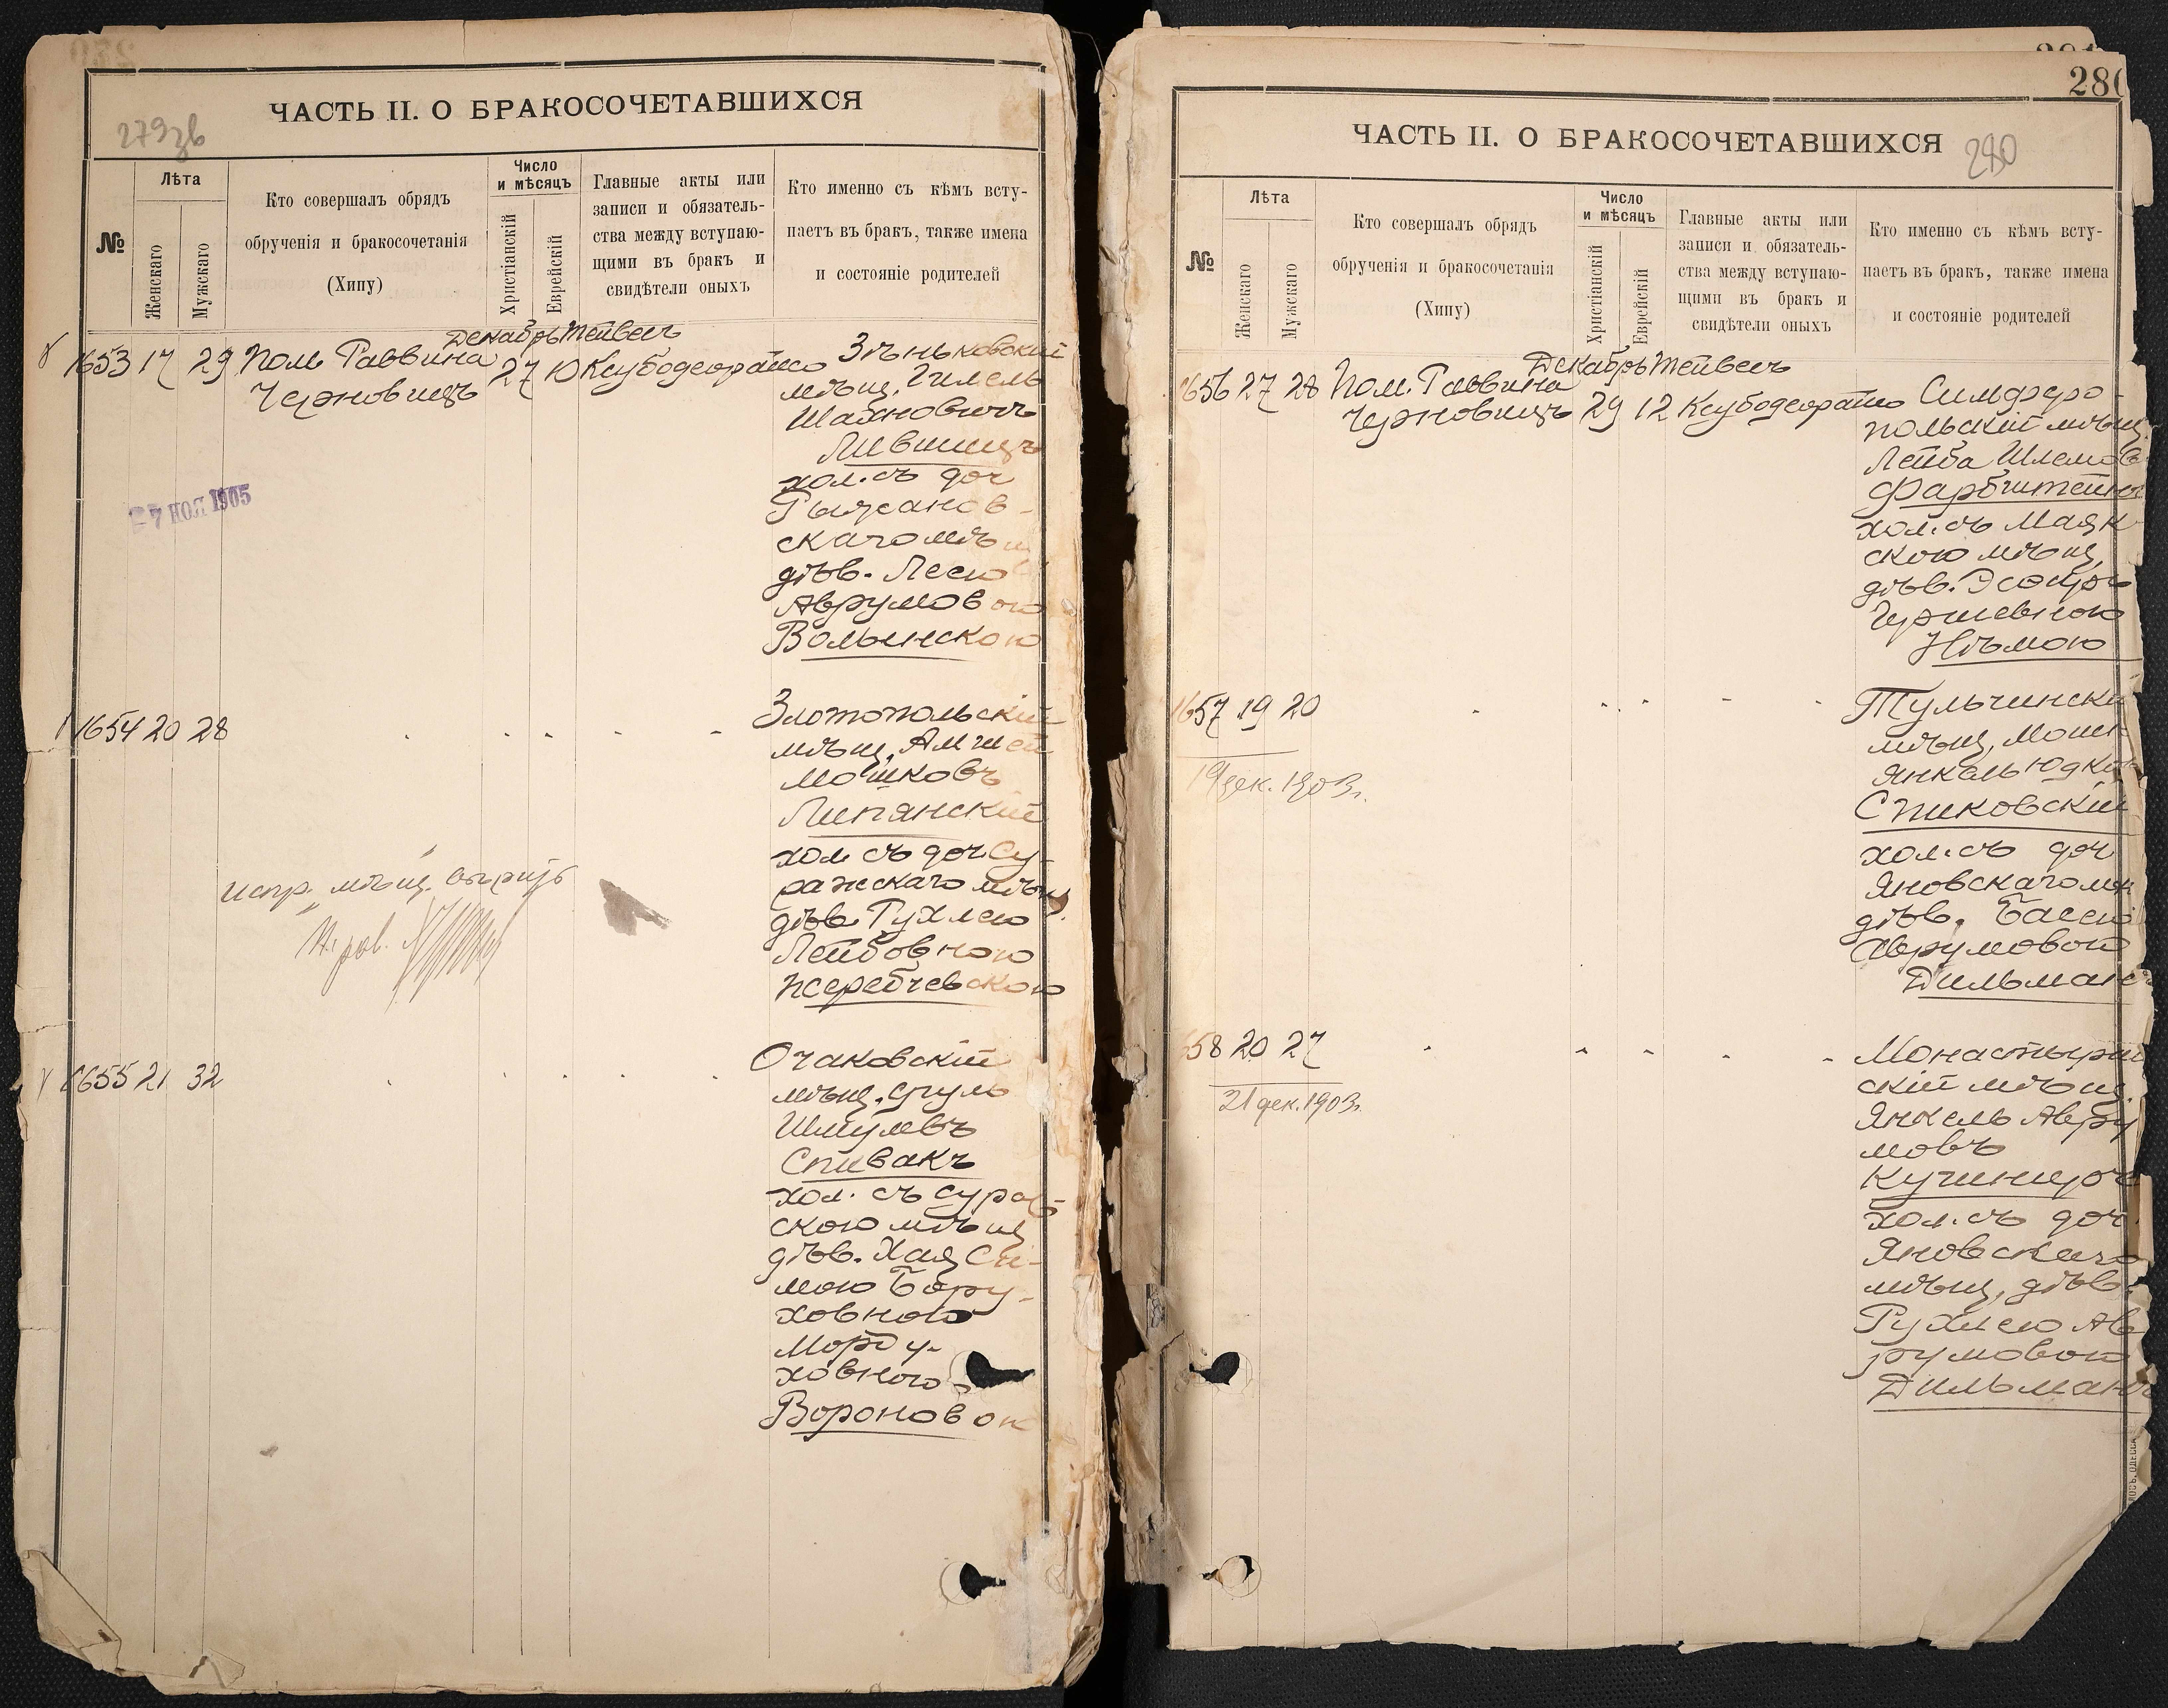 ЧАСТЬ II. О БРАКОСОЧЕТАВШИХСЯ
279зв
№
Лѣта
Женскаго
Мужскаго
Кто совершалъ обрядъ
обрученія и бракосочетанія
(Хипу)
Число
и мѣсяцъ
Христіанскій
Еврейскій
Главные акты или
записи и обязатель-
ства между вступаю-
щими въ бракъ и
свидѣтели оныхъ
Кто именно съ кѣмъ всту-
паетъ въ бракъ, также имена
и состояніе родителей
Декабрь Тейвесъ
1653 17 29 Пом. Раввина
Черновицъ 27 10
Зѣньковскій
мѣщ. Гимель
Шахновичъ
Лившицъ
хол. съ доч
Рыжанов-
скаго мѣщ
дѣв. Песею
Аврумовою
Волынскою
27 НОЯ 1905
1654 20 28
Златопольскій
мѣщ.
Мошковъ
Липянскій
хол. съ доч Су-
ражскаго мѣщ.
дѣв. Рухлею
Лейбовною
Жеребчевскою
испр. мѣщ.
1655 21 32
Очаковскій
мѣщ. Сруль
Шмулевъ
Спивакъ
хол. съ
скою мѣщ
дѣв. Хая Си-
мою Бору-
ховною
Морду-
ховною
Вороновок
280
ЧАСТЬ II. О БРАКОСОЧЕТАВШИХСЯ
280
№
Лѣта
Женскаго
Мужскаго
Кто совершалъ обрядъ
обрученія и бракосочетанія
(Хипу)
Число
и мѣсяцъ
Христіанскій
Еврейскій
Главные акты или
записи и обязатель-
ства между вступаю-
щими въ бракъ и
свидѣтели оныхъ
Кто именно съ кѣмъ всту-
паетъ въ бракъ, также имена
и состояніе родителей
Декабрь Тейвесъ
1656 27 28 Пом. Раввина
Черновицъ 29 12
Симферо-
польскій мѣщ.
Лейба Шлемов
Фарбштейнъ
хол. съ Маяк
скою мѣщ.
дѣв. Эсѳирь
Гершевною
Нѣмою
1657 19 20
19 дек. 1903 г.
Тульчинскій
мѣщ. Мошк
Янкель Юдков
Спиковскій
хол. съ доч
Яновскаго мѣщ
дѣв. Басею
Аврумовою
Дильман
658 20 27
21 дек. 1903 г.
Монастыри
скій мѣщ.
Янкель Авру
мовъ
Кушниро
хол. съ доч.
Яновскаго
мѣщ. дѣв.
Рухлею Ав
румовою
Дильман